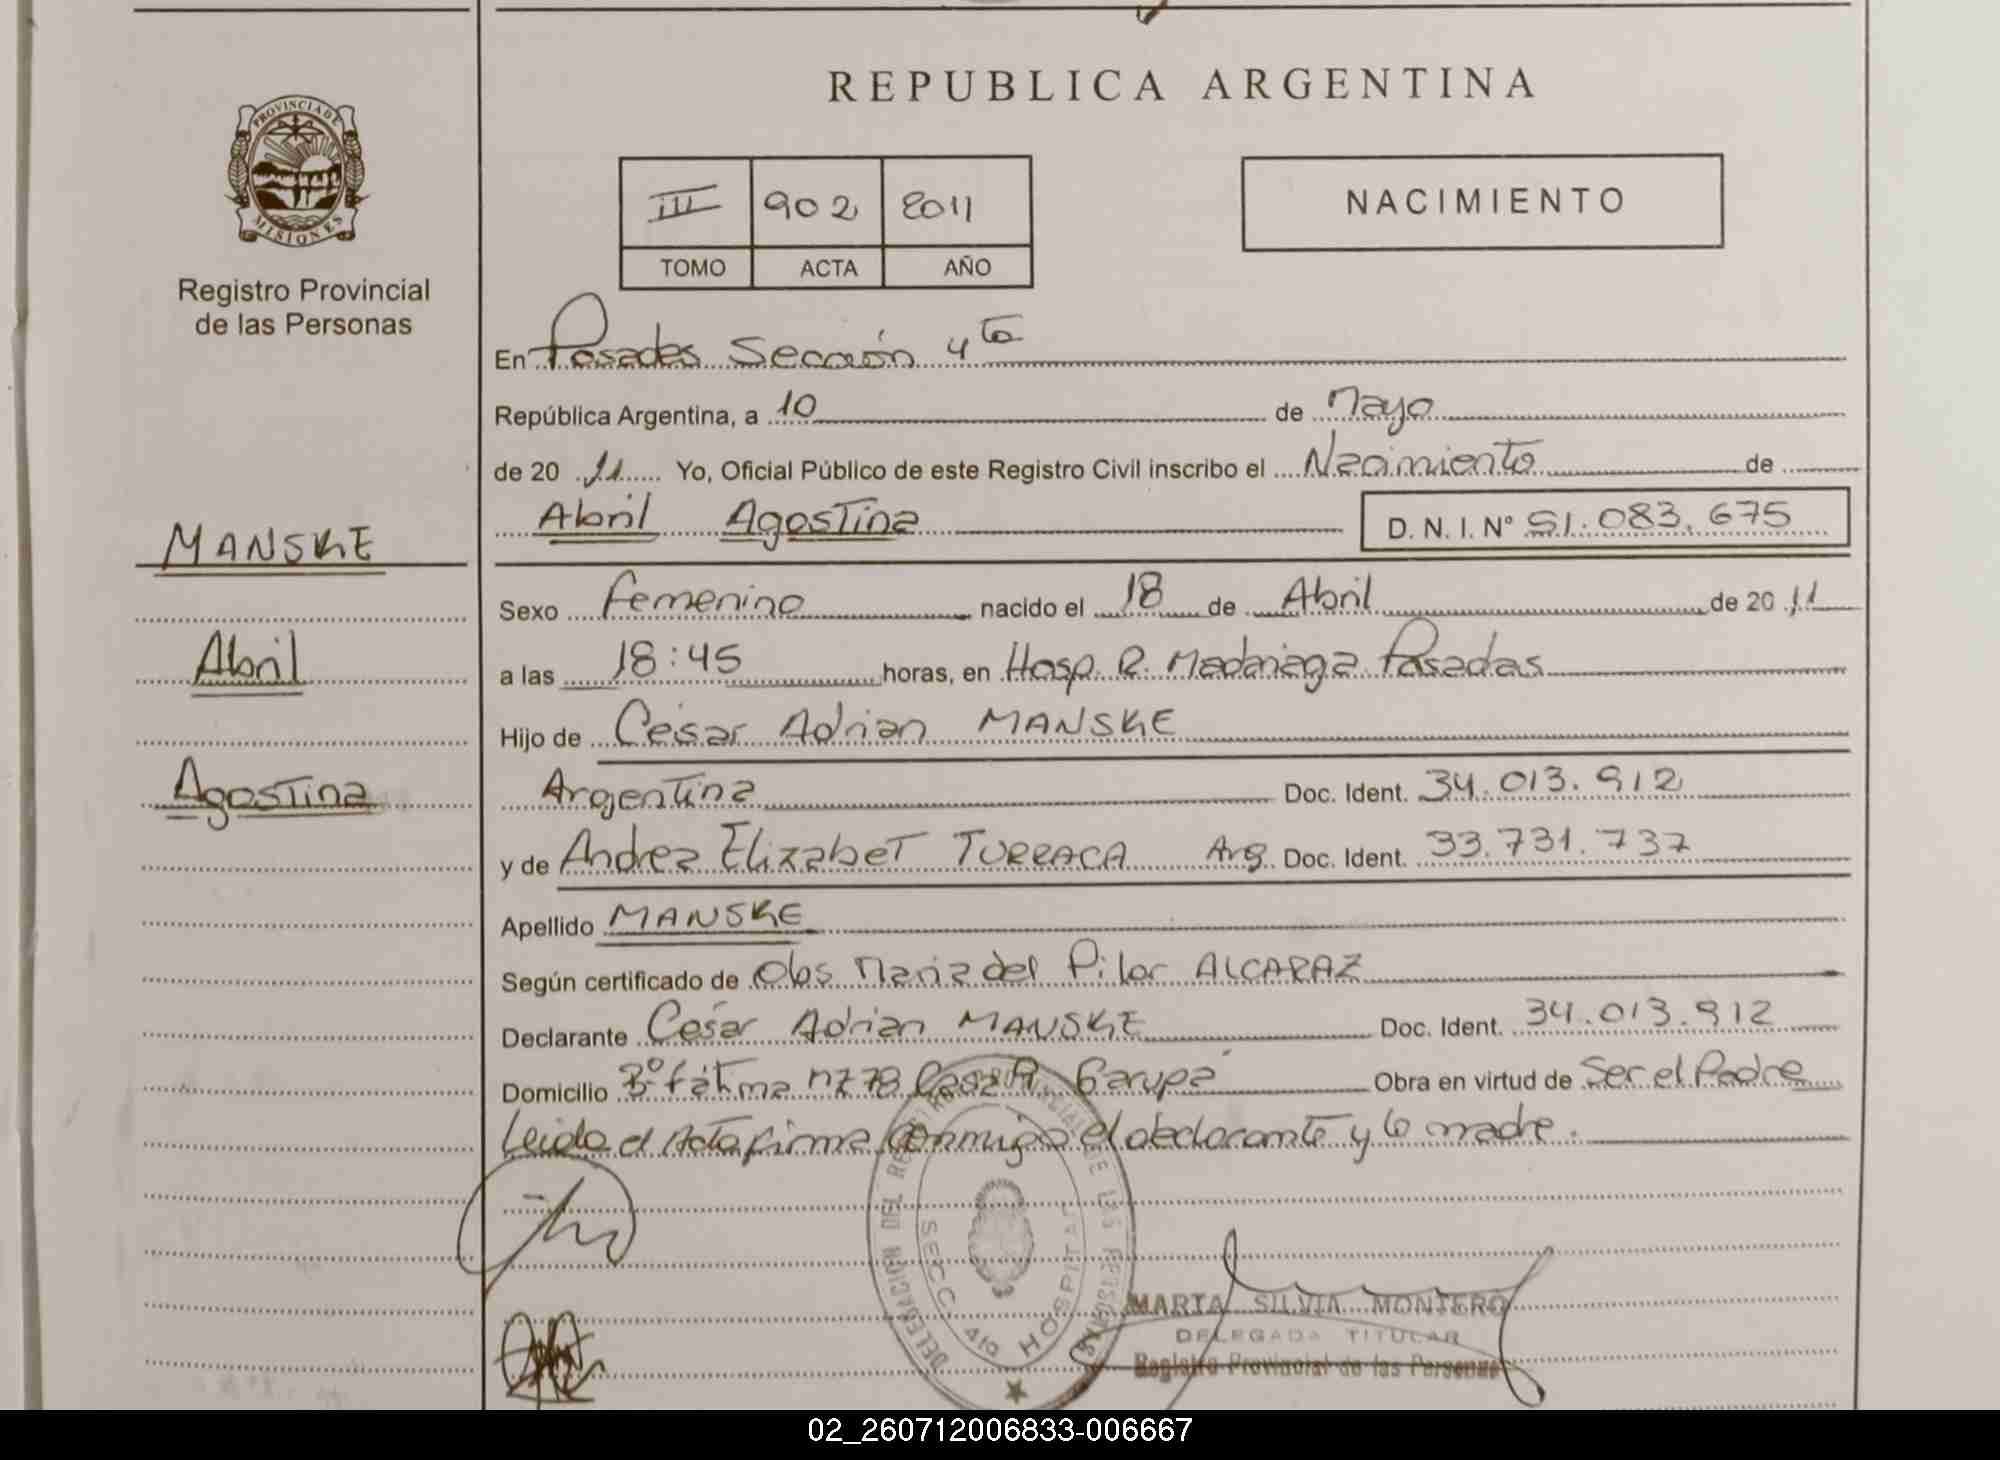 REPUBLICA ARGENTINA
PROVINCIA DE
MISIONES
Registro Provincial
de las Personas
III 902 2011
TOMO ACTA AÑO
NACIMIENTO
En Posadas Sección 4ta
República Argentina, a 10 de Mayo
de 20 11 Yo, Oficial Público de este Registro Civil inscribo el Nacimiento de
Abril Agostina D. N. I. N° 51.083.675
MANSKE
Abril
Agostina
Sexo Femenino nacido el 18 de Abril de 20 11
a las 18:45 horas, en Hosp. R. Madariaga Posadas
Hijo de César Adrian MANSKE
Argentina Doc. Ident. 34.013.912
y de Andrea Elizabet TURRACA Arg. Doc. Ident. 33.731.737
Apellido MANSKE
Según certificado de Obs Maria del Pilar ALCARAZ
Declarante César Adrian MANSKE Doc. Ident. 34.013.912
Domicilio Bº Fátima mz 78 Casa Garupá Obra en virtud de Ser el Padre
Leida el Acta firma conmigo el declarante y la madre.
DELEGACION DEL REGISTRO PROVINCIAL DE LAS PERSONAS
SECC 4ta HOSPITAL
MARTA SILVIA MONTERO
DELEGADA TITULAR
Registro Provincial de las Personas
02_260712006833-006667